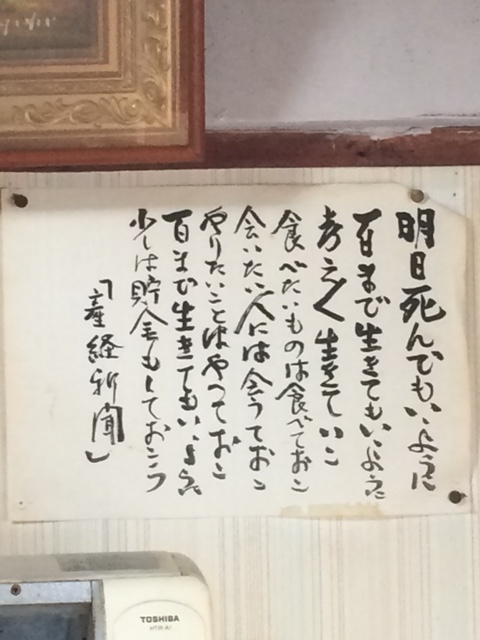 明日死んでもいいように
百まで生きてもいいように
考えて生きていこ
食べたいものは食べておこ
会いたい人には会うておこ
やりたいことはやっておこ
百まで生きてもいいように
少しは貯金もしておこう
「産経新聞」
TOSHIBA